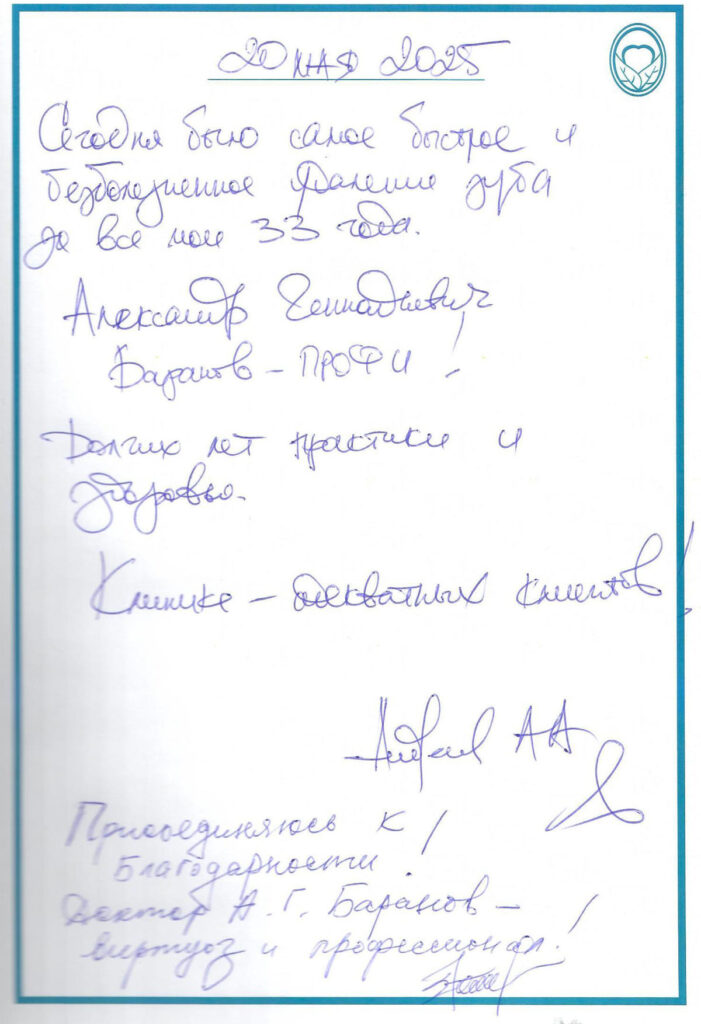 20 мая 2025
Сегодня было самое быстрое и
безболезненное удаление зуба
за все мои 33 года.
Александр Геннадьевич
Баранов – ПРОФИ!
Долгих лет практики и
здоровья.
Клинике – адекватных клиентов!
АА
Присоединяюсь к
благодарности!
Доктор А. Г. Баранов –
виртуоз и профессионал!